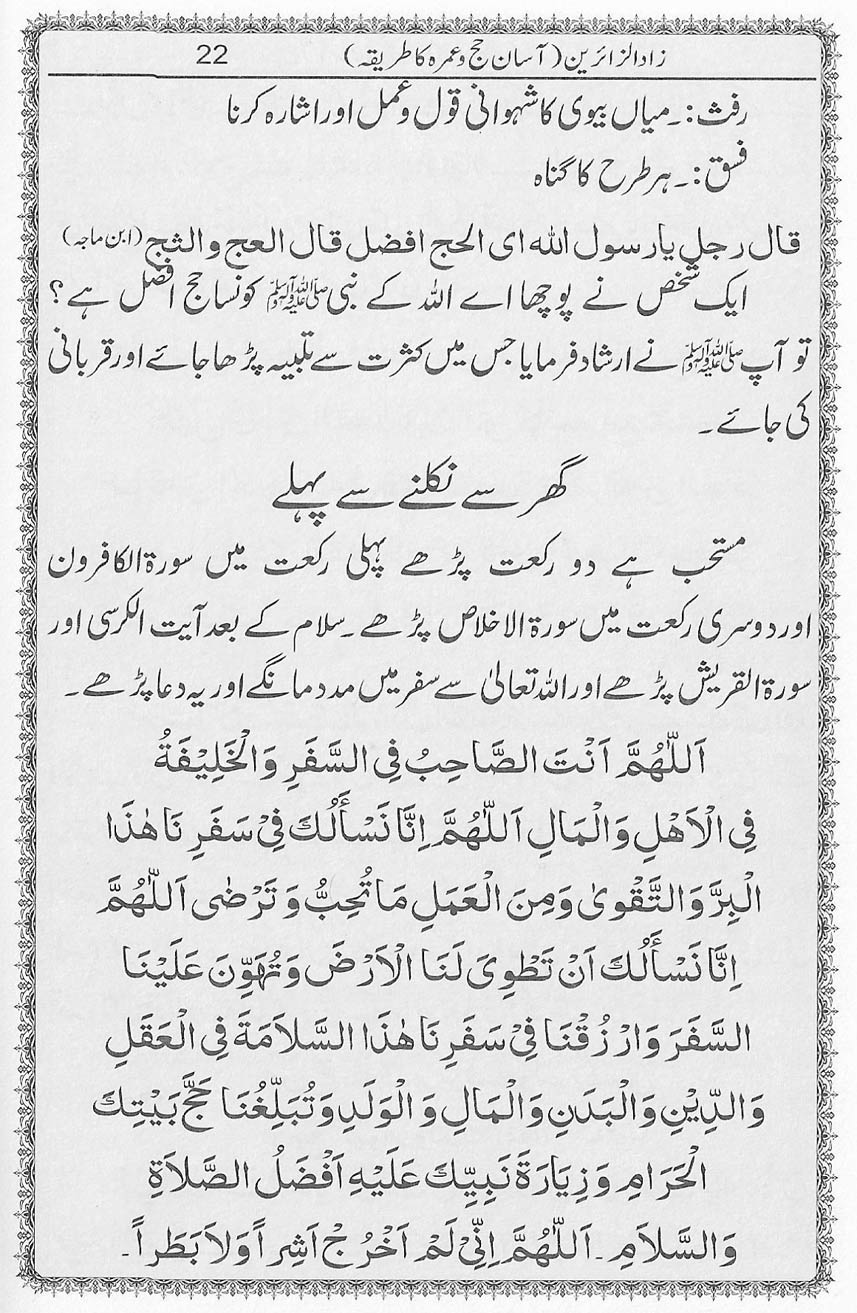 زاد الزائرین (آسان حج و عمرہ کا طریقہ) 22
رفث:۔ میاں بیوی کا شہوانی قول و عمل اور اشارہ کرنا
فسق:۔ ہر طرح کا گناہ
قال رجل یا رسول اللہ ای الحج افضل قال العج والثج (ابن ماجہ)
ایک شخص نے پوچھا اے اللہ کے نبی ﷺ کونسا حج افضل ہے؟
تو آپ ﷺ نے ارشاد فرمایا جس میں کثرت سے تلبیہ پڑھا جائے اور قربانی
کی جائے۔
گھر سے نکلنے سے پہلے
مستحب ہے دو رکعت پڑھے پہلی رکعت میں سورۃ الکافرون
اور دوسری رکعت میں سورۃ الاخلاص پڑھے۔ سلام کے بعد آیت الکرسی اور
سورۃ القریش پڑھے اور اللہ تعالیٰ سے سفر میں مدد مانگے اور یہ دعا پڑھے۔
اَللّٰهُمَّ اَنْتَ الصَّاحِبُ فِي السَّفَرِ وَالْخَلِيْفَةُ
فِي الْاَهْلِ وَالْمَالِ اَللّٰهُمَّ اِنَّا نَسْأَلُكَ فِيْ سَفَرِنَا هٰذَا
الْبِرَّ وَالتَّقْوٰى وَمِنَ الْعَمَلِ مَا تُحِبُّ وَتَرْضٰى اَللّٰهُمَّ
اِنَّا نَسْأَلُكَ اَنْ تَطْوِىَ لَنَا الْاَرْضَ وَتُهَوِّنَ عَلَيْنَا
السَّفَرَ وَارْزُقْنَا فِيْ سَفَرِنَا هٰذَا السَّلَامَةَ فِي الْعَقَلِ
وَالدِّيْنِ وَالْبَدَنِ وَالْمَالِ وَالْوَلَدِ وَتُبَلِّغُنَا حَجَّ بَيْتِكَ
الْحَرَامِ وَزِيَارَةَ نَبِيِّكَ عَلَيْهِ اَفْضَلُ الصَّلَاةِ
وَالسَّلَامِ۔ اَللّٰهُمَّ اِنِّيْ لَمْ اَخْرُجْ اَشِراً وَلَا بَطَراً۔